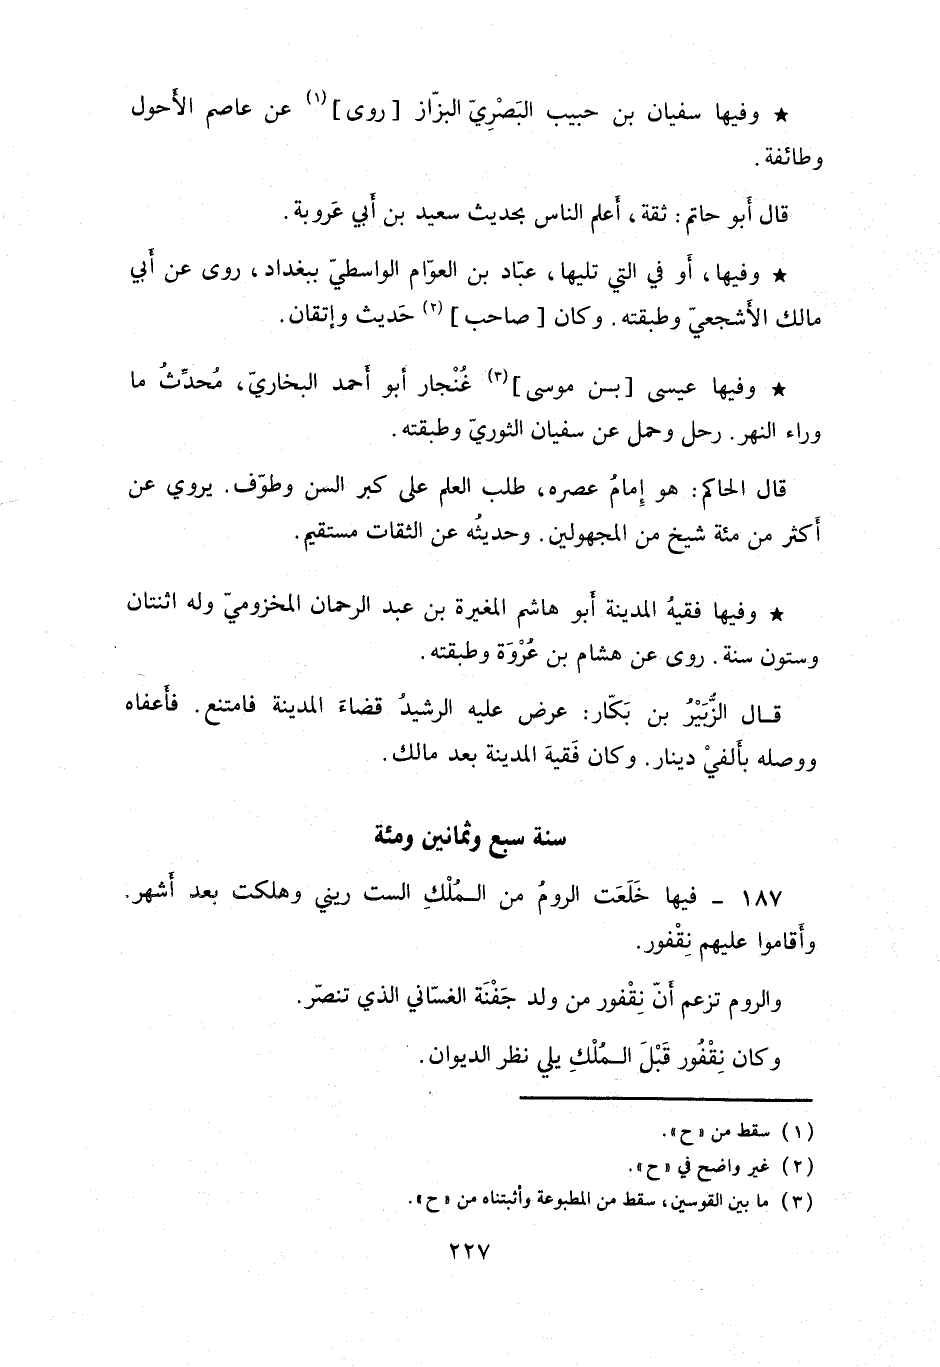 ★ وفيها سفيان بن حبيب البَصْرِيّ البزّاز [ روى ] (١) عن عاصم الأَحول
وطائفة .
قال أَبو حاتم : ثقة ، أَعلم الناس بحديث سعيد بن أَبي عَروبة .
★ وفيها ، أَو في التي تليها ، عبّاد بن العوّام الواسطيّ ببغداد ، روى عن أَبي
مالك الأَشجعيّ وطبقته . وكان [ صاحب ] (٢) حَديث وإتقان .
★ وفيها عيسى [ بـن موسى ] (٣) غُنْجار أبو أَحمد البخاريّ ، مُحدِّثُ ما
وراء النهر . رحل وحمل عن سفيان الثوريّ وطبقته .
قال الحاكم : هو إِمامُ عصره ، طلب العلم على كبر السن وطوّف . يروي عن
أَكثر من مئة شيخ من المجهولين . وحديثُه عن الثقات مستقيم .
★ وفيها فقيهُ المدينة أَبو هاشم المغيرة بن عبد الرحمان المخزوميّ وله اثنتان
وستون سنة . روى عن هشام بن عُرْوَة وطبقته .
قـال الزُّبَيْرُ بن بَكّار : عرض عليه الرشيدُ قضاءَ المدينة فامتنع . فأَعفاه
ووصله بأَلفيْ دينار . وكان فَقيهَ المدينة بعد مالك .
سنة سبع وثمانين ومئة
١٨٧ - فيها خَلَعَت الرومُ من الـمُلْكِ الست ريني وهلكت بعد أَشهر .
وأَقاموا عليهم نِقْفور .
والروم تزعم أَنّ نِقْفور من ولد جَفْنَة الغسّاني الذي تنصّر .
وكان نِقْفُور قَبْلَ الـمُلْكِ يلي نظر الديوان .
(١) سقط من « ح » .
(٢) غير واضح في « ح » .
(٣) ما بين القوسين ، سقط من المطبوعة وأثبتناه من « ح » .
٢٢٧